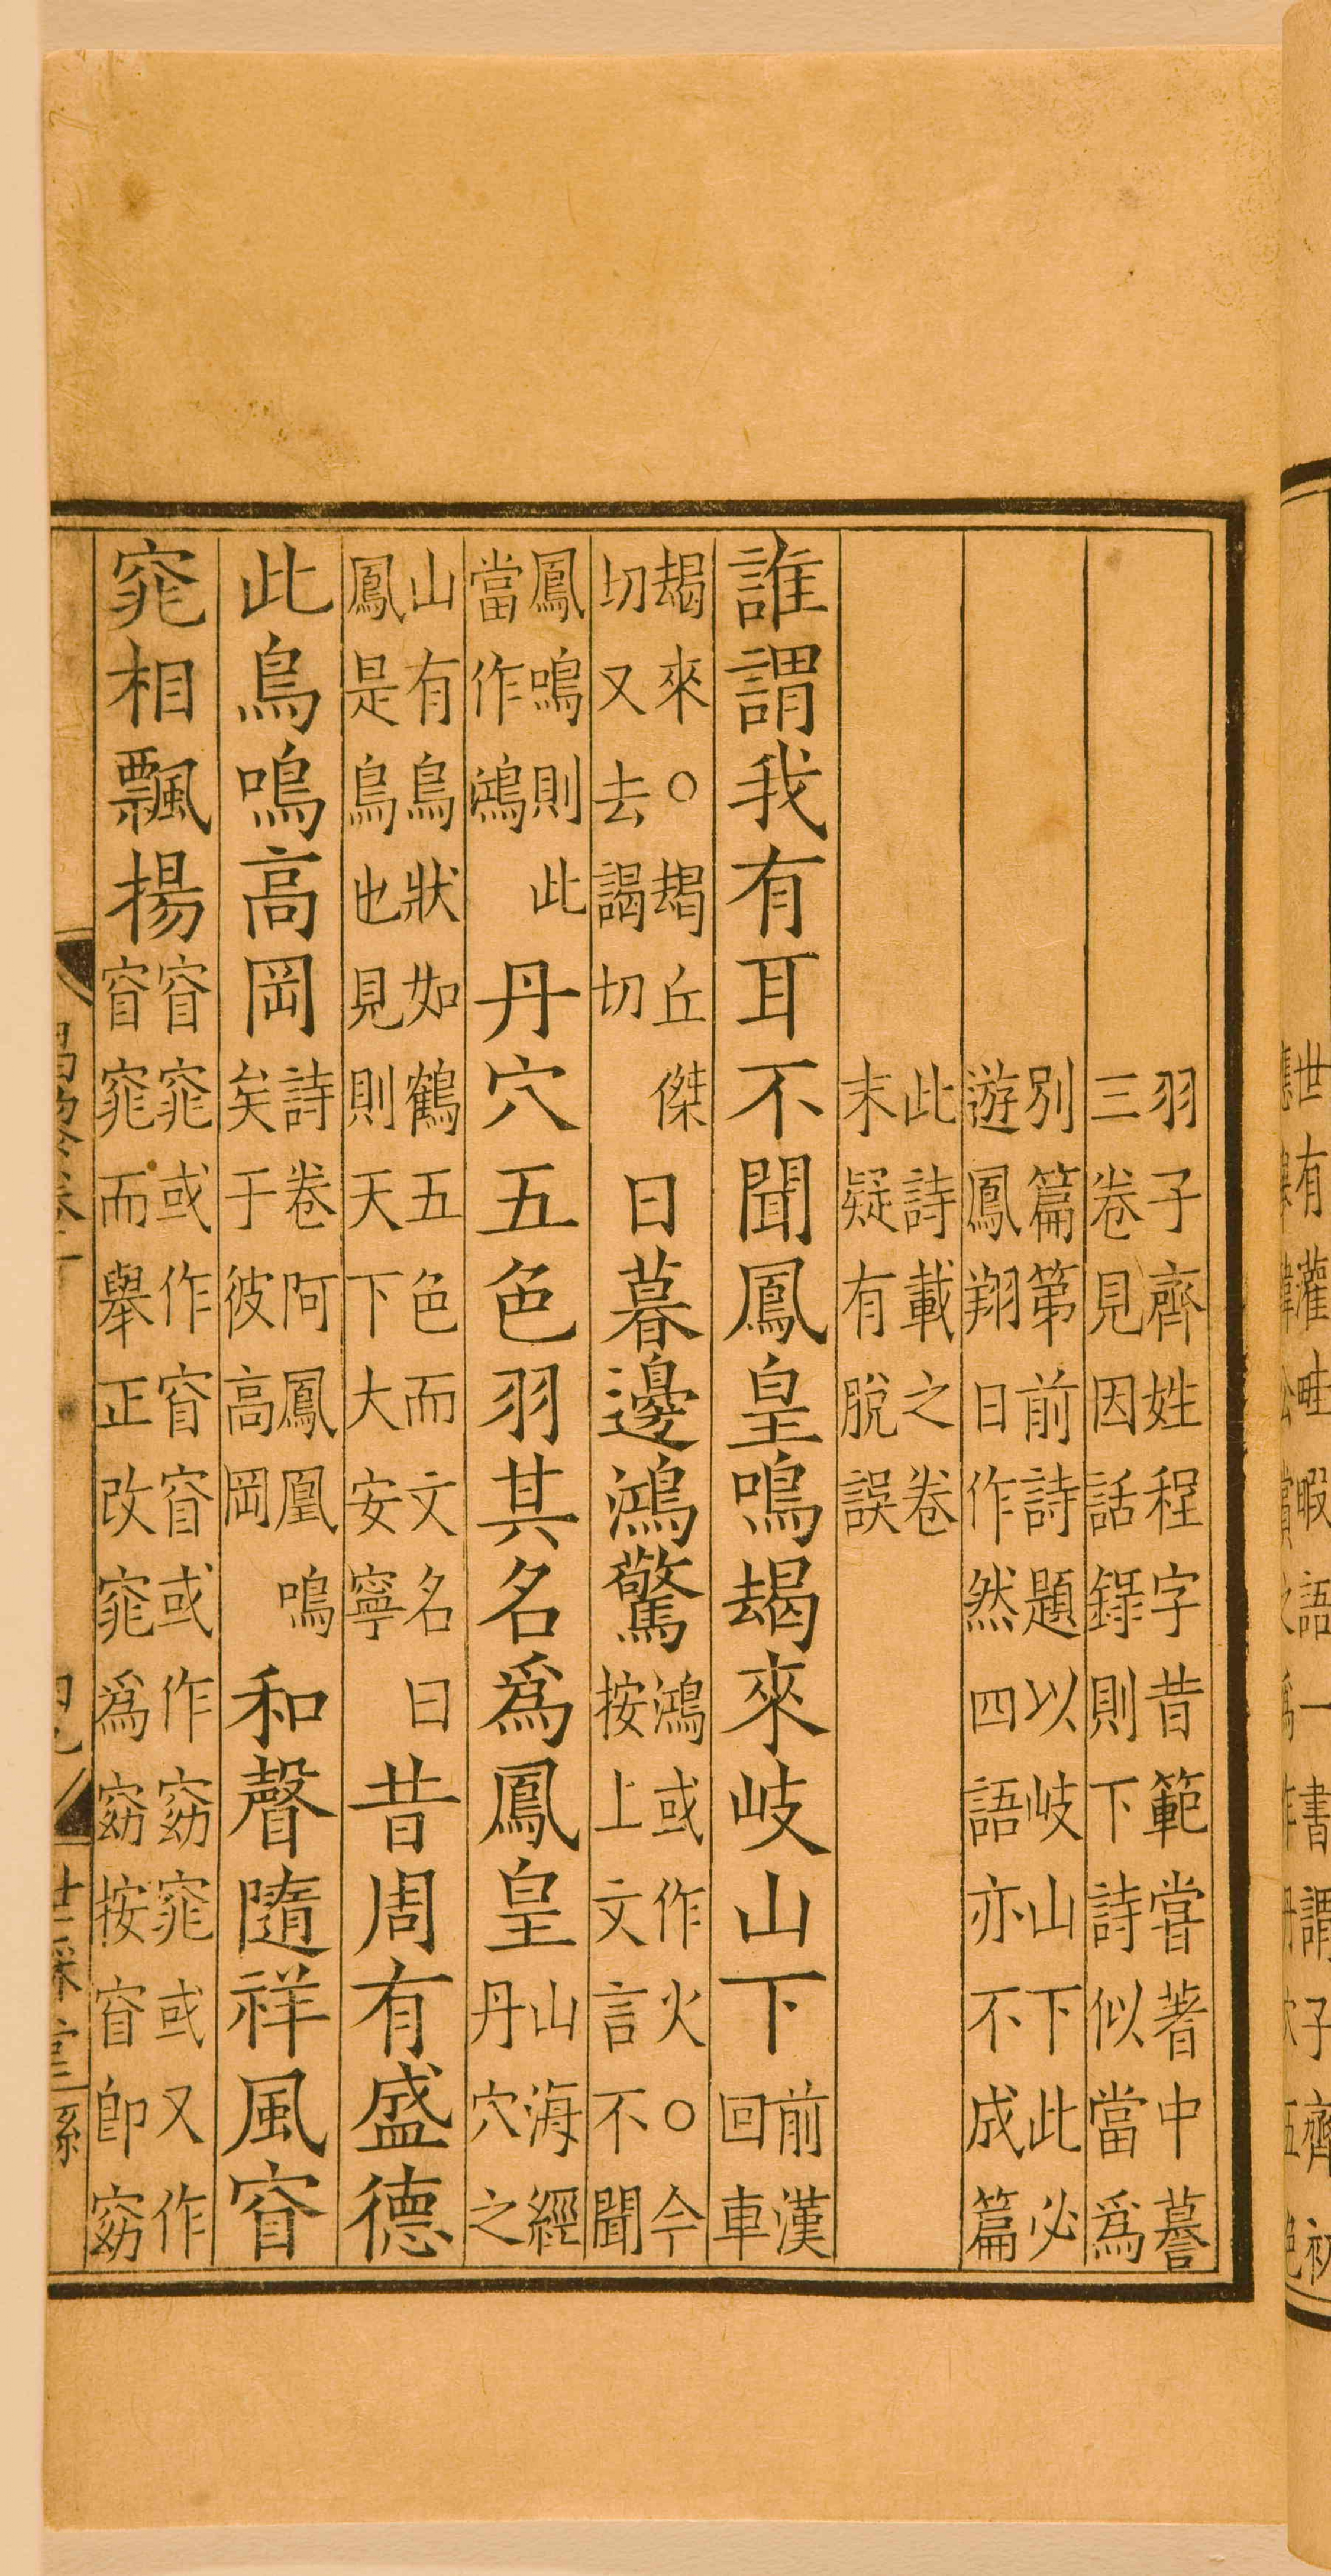 世有灌畦暇語一書謂子齊初
羽子齊姓程字昔範嘗著中謩
三卷見因話錄則下詩似當爲
別篇第前詩題以岐山下此必
遊鳳翔日作然四語亦不成篇
此詩載之卷
末疑有脫誤
誰謂我有耳不聞鳳皇鳴朅來岐山下前漢
回車
朅來○朅丘傑
切又去謁切
日暮邊鴻驚鴻或作火○今
按上文言不聞
鳳鳴則此
當作鴻
丹穴五色羽其名爲鳳皇山海經
丹穴之
山有鳥狀如鶴五色而文名曰
鳳是鳥也見則天下大安寧
昔周有盛德
此鳥鳴高岡詩卷阿鳳凰鳴
矣于彼高岡
和聲隨祥風窅
窕相飄揚窅窕或作窅窅或作窈窕或又作
窅窕而舉正改窕爲窈按窅即窈